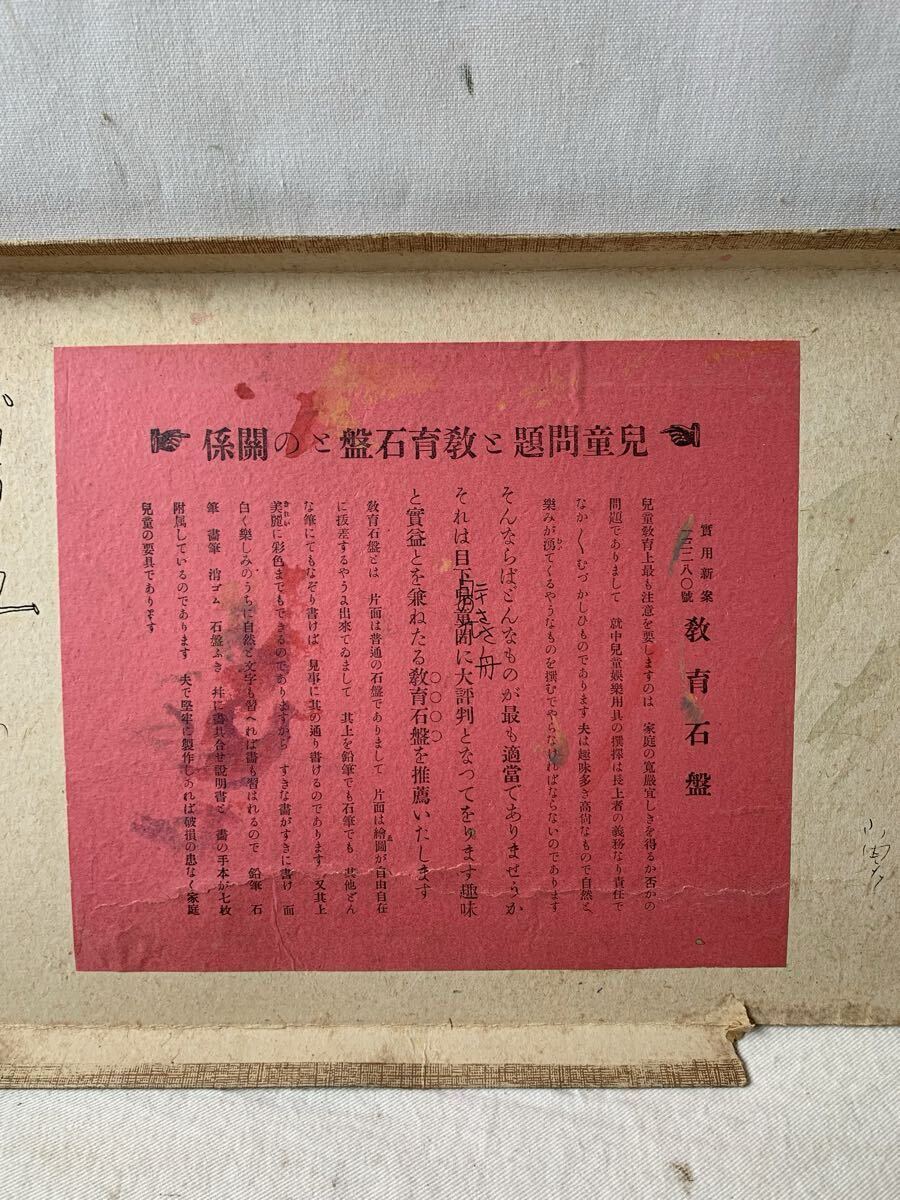 兒童問題と教育石盤との關係
實用新案
二三八〇號
教育石盤
兒童教育上最も注意を要しますのは 家庭の寛嚴宜しきを得るか否かの
問題でありまして 就中兒童娯樂用具の撰擇は長上者の義務なり責任で
なか〱むづかしひものであります 夫は趣味多き高尚なもので自然と
樂みが湧てくるやうなものを撰むでやらなければならないのであります
そんならばどんなものが最も適當でありませうか
それは目下兒童間に大評判となつてをります趣味
と實益とを兼ねたる教育石盤を推薦いたします
教育石盤とは 片面は普通の石盤でありまして 片面は繪圖が自由自在
に拔差するやうよ出來てゐまして 其上を鉛筆でも石筆でも 其他どん
な筆にてもなぞり書けば 見事に其の通り書けるのであります 又其上
美麗に彩色までもできるのでありますから すきな畵がすきに書け 面
白く樂しみのうちに自然と文字も習へれば畵も習はれるので 鉛筆 石
筆 畵筆 消ゴム 石盤ふき 幷に畵具合せ說明書と 畵の手本が七枚
附属しているのであります 夫で堅牢に製作しあれば破損の患なく家庭
兒童の要具であります